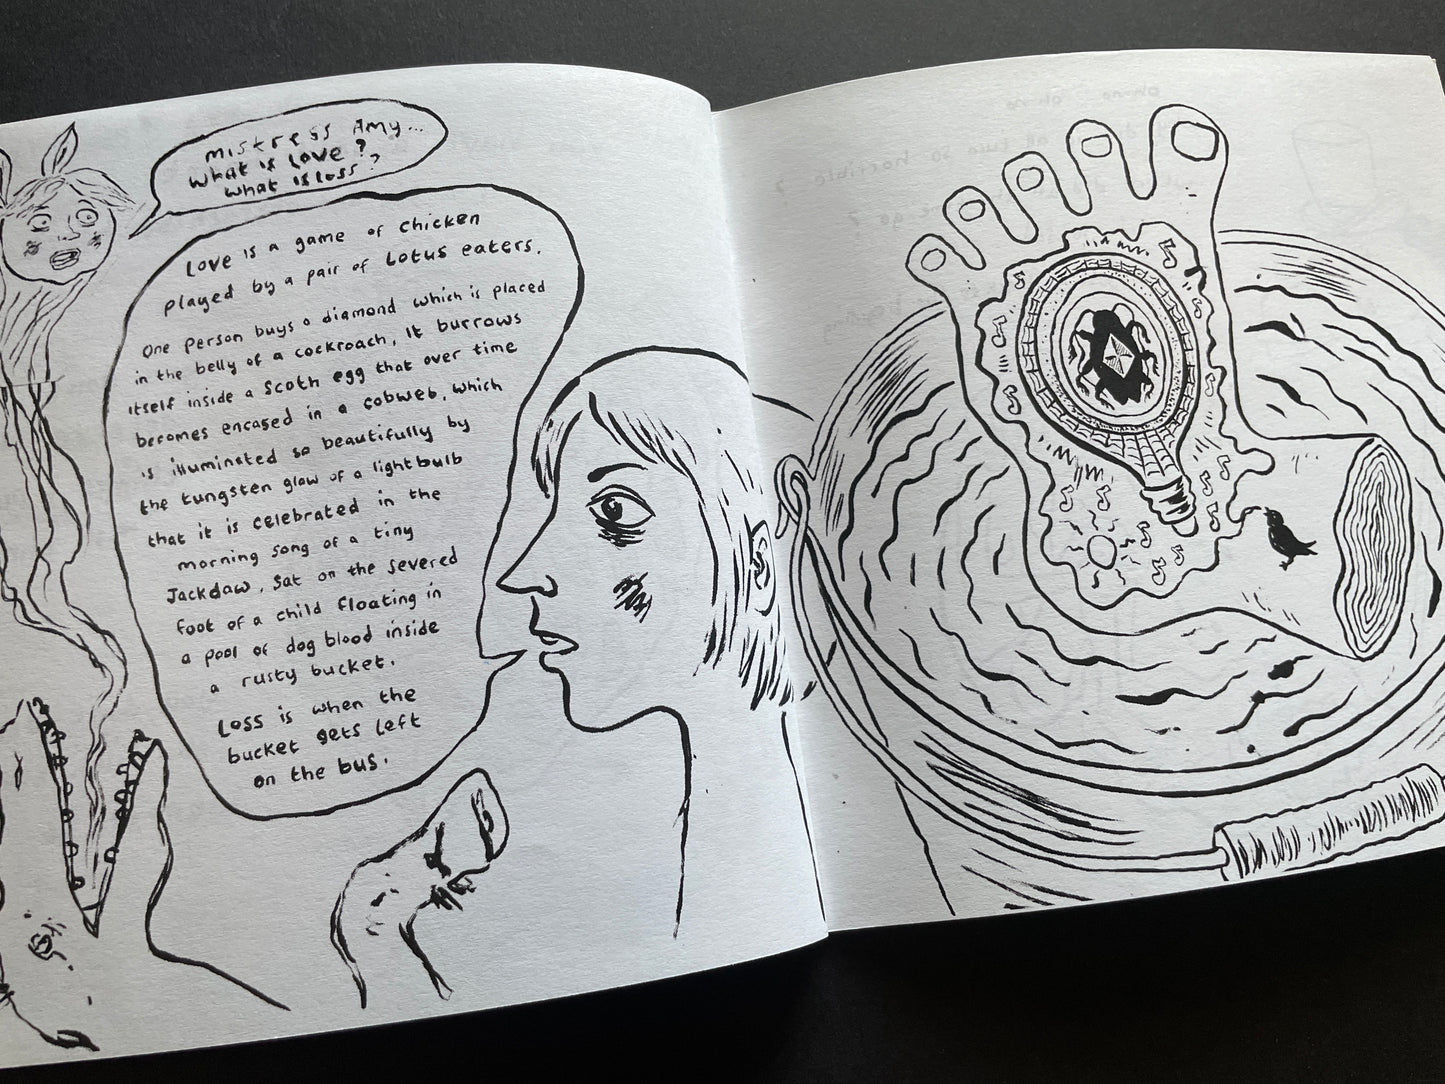 Mistress Amy...
what is Love?
what is loss?
Love is a game of chicken
played by a pair of Lotus eaters.
One person buys a diamond which is placed
in the belly of a cockroach, It burrows
itself inside a Scoth egg that over time
becomes encased in a cobweb, which
is illuminated so beautifully by
the tungsten glow of a lightbulb
that it is celebrated in the
morning song of a tiny
Jackdaw, sat on the severed
foot of a child floating in
a pool of dog blood inside
a rusty bucket.
Loss is when the
bucket gets left
on the bus.